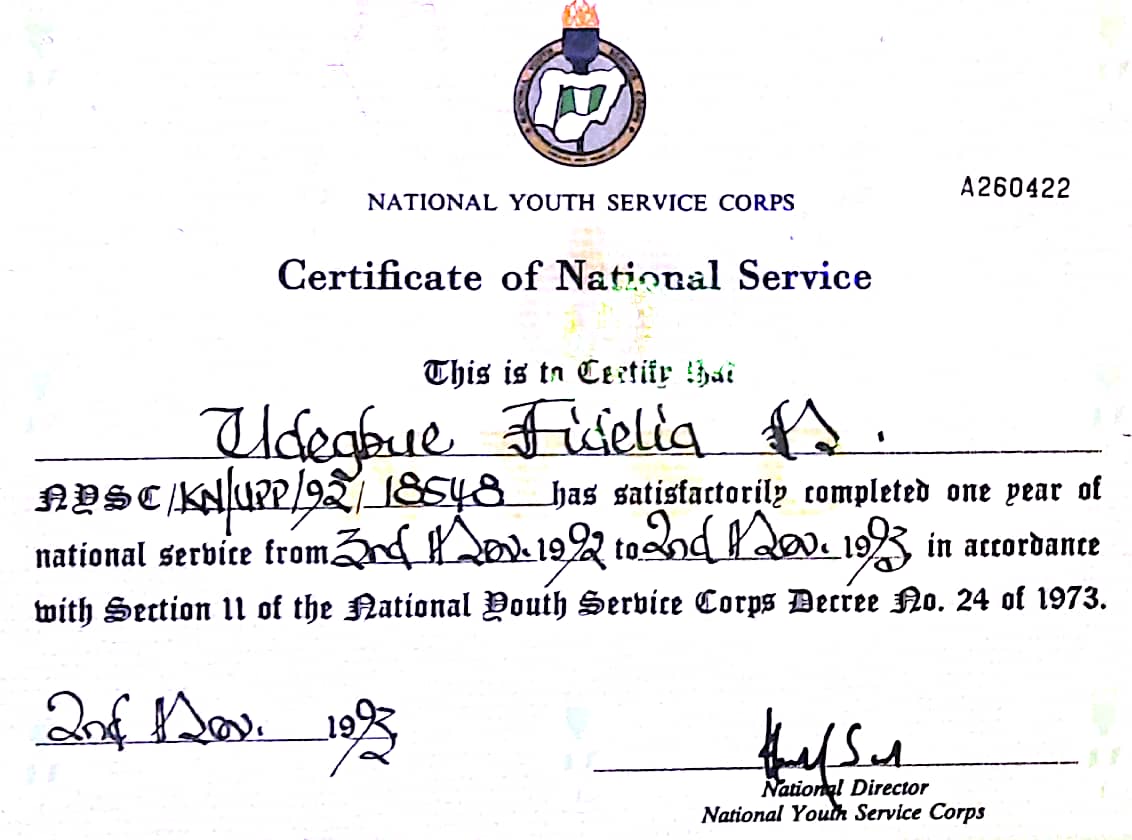 A260422
NATIONAL YOUTH SERVICE CORPS
Certificate of National Service
This is to Certify that
Udegbue Fidelia N.
NYSC/KN/UPP/92/18548 has satisfactorily completed one year of
national service from 3rd Nov. 1992 to 2nd Nov. 1993 in accordance
with Section 11 of the National Youth Service Corps Decree No. 24 of 1973.
2nd Nov. 1993
National Director
National Youth Service Corps